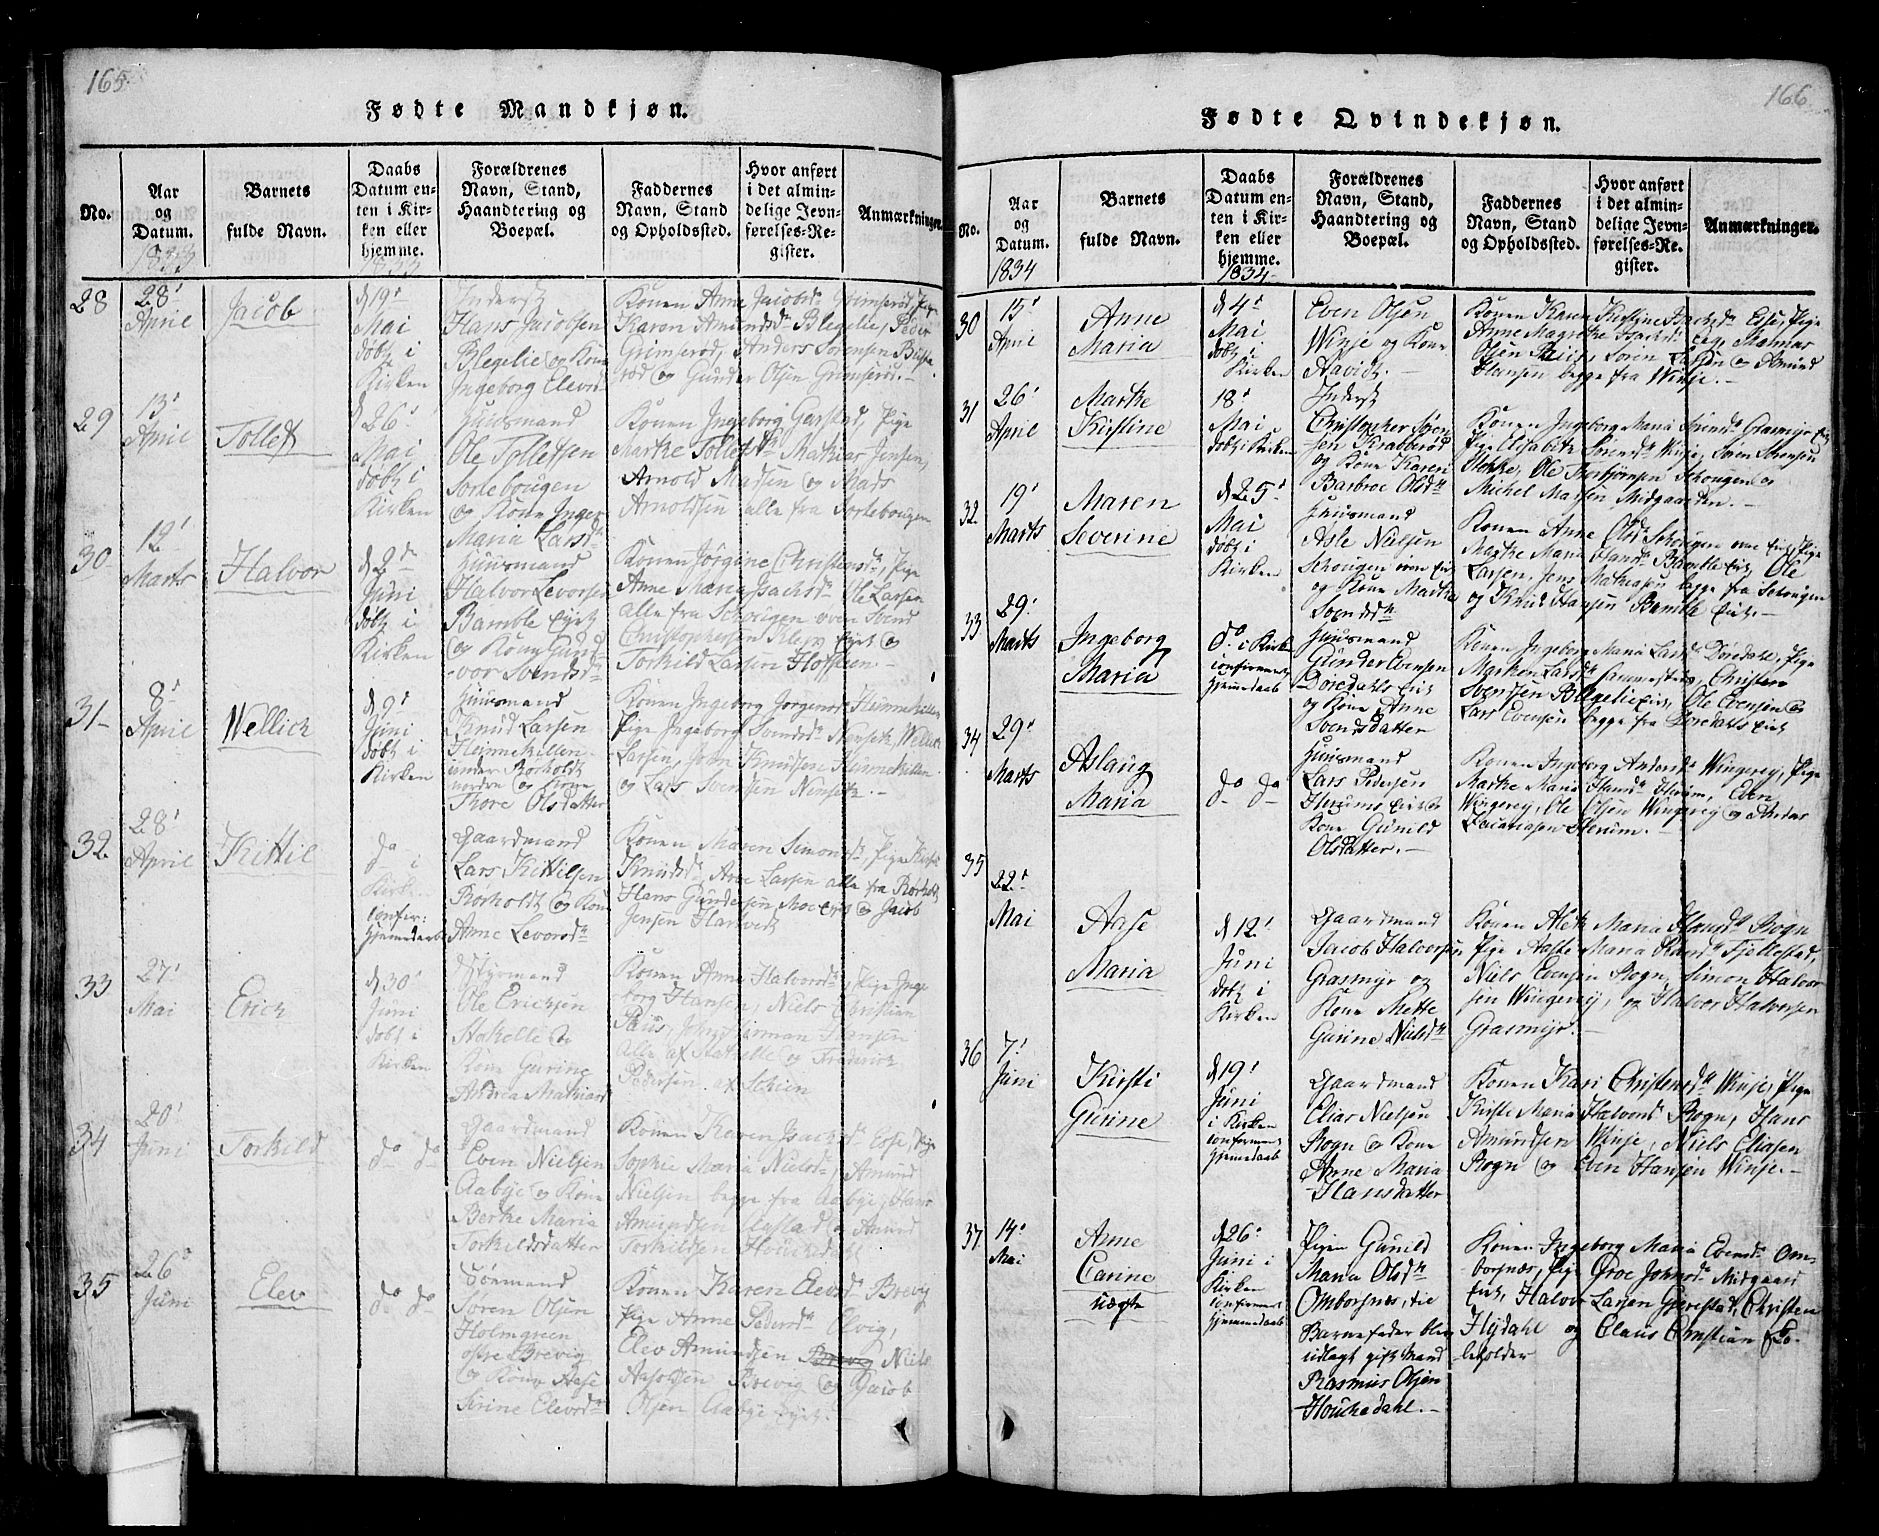 165.
Fødte Mandkjøn.
No.
Aar
og
Datum.
1833
Barnets
fulde Navn.
Daabs
Datum en-
ten i Kir-
ken eller
hjemme.
1833
Forældrenes
Navn, Stand,
Haandtering og
Boepæl.
Faddernes
Navn, Stand
og Opholdssted.
Hvor anført
i det almin-
delige Jevn-
førelses-Re-
gister.
Anmærkninger.
28
28'
April
Jacob
d 19'
Mai
døbt i
Kirken
Inderst
Hans Jacobsen
Blegelie og Kone
Ingeborg Elevsd
Konen Anne Jacobsd Grimserød, Pige
Karen Amundsd Blegelie, Peder
Grimserød, Anders Sørensen
rød og Gunder Olsen Grimserød.-
29
13'
April
Tollef
d 26'
Mai
døbt i
Kirken
Huusmand
Ole Tollefsen
Torlebougen
og Kone Inger
Maria Larsd
Konen Ingeborg Garstad, Pige
Marthe Tollefsd Mathias Jensen,
Arnold Madsen og Mads
Arnoldsen alle fra Torlebougen
30
12'
Marts
Halvor
d 2d
Juni
døbt i
Kirken
Huusmand
Halvor Levorsen
Bamble Eyet
og Kone Gun-
vor Svendsd
Konen Jørgine Christensd, Pige
Anne Maria Isachsd Ole Larsen
alle fra Schougen oven Svend
Christophersen Klep Eyet og
Torkild Larsen
31-
8'
April
Wellich
d 9'
Juni
døbt i
Kirken
Huusmand
Knud Larsen
Heinnekillen
under Rørholdt
nordre og Kone
Tore Olsdatter
Konen Ingeborg Jørgensd Heinnekillen
Pige Ingeborg Svendsd Nensett, Wellich
Larsen, John Knudsen Heinnekillen
og Lars Svendsen Nensett.-
32.
28'
April
Kittil
do i
Kirk.
confir:
hjemmedøbt
Gaardmand
Lars Kittilsen
Rørholdt og Kone
Anne Levorsd
Konen Maren Simonsd, Pige
Knudsd, Arne Larsen alle fra Rørholdt
Hans Gundersen Moe og Jacob
Jensen Hanvedt
33
27'
Mai
Erich
d 30'
Juni
døbt i
Kirken
Styrmand
Ole Erichsen
Stathelle og
Kone Gurine
Andrea Mathiasd
Konen Anne Halvorsd, Pige Inge-
borg Hansen, Niels Christian
Paus, John Herman Hansen
Alle af Stathelle og Fredrich
Pedersen af Schien
34
20'
Juni
Torkild
do do
Gaardmand
Even Nielsen
Aabye og Kone
Berthe Maria
Torkildsdatter
Konen Karen Isachsd Esse, Pige
Sophie Maria Nielsd, Amund
Nielsen begge fra Aabye, Hans
Amundsen og Amund
Torkildsen
35
26'
Juni
Elev
do do
Sømand
Søren Olsen
Holmgreen
Brevig
og Kone Aase
Serine Elevsd
Konen Karen Elevsd Brevig
Pige Anne Pedersd Elvig,
Elev Amundsen Brevig Niels
Brevig og Jacob
Olsen Aabye Eyet.-
166
Fødte Qvindekjøn.
No.
Aar
og
Datum.
1834
Barnets
fulde Navn.
Daabs
Datum en-
ten i Kir-
ken eller
hjemme.
1834-
Forældrenes
Navn, Stand,
Haandtering og
Boepæl.
Faddernes
Navn, Stand
og Opholdssted.
Hvor anført
i det almin-
delige Jevn-
førelses-Re-
gister.
Anmærkninger.
30
15'
April
Anne
Maria
d 4'
Mai
døbt i
Kirken
Even Olsen
Winje og Kone
Konen Karen Kirstine Isachsd Esse, Pige
Anne Magrethe Isachsd
Olsen Søren og Amund
Hansen begge fra Winje.-
31
26'
April
Marthe
Kirstine
18'
Mai
døbt i Kirken
Inderst
Christopher Søren-
sen Krabberød
og Kone Karen
Barbroe Olsd
Konen Ingeborg Maria Svendsd Grasmyr
Pige Elisabeth Sørensd Winje, Søren Sørensen
Ole Thorbjørnsen Schougen og
Michel Madsen Midgaarden.-
32.
19'
Marts
Maren
Severine
d 25'
Mai
døbt i
Kirken
Huusmand
Asle Nielsen
Schougen oven Eiet
og Kone Marthe
Svendsd
Konen Anne Olsd Schougen ovne Eiet, Pige
Marthe Maria Hansd Bamble Eiet, Ole
Larsen, Jens Mathiasen begge fra Schougen
og Knud Hansen Bamble Eiet.-
33
29'
Marts
Ingeborg
Maria
do. i Kirken
confirmert
hjemmedaab
Huusmand
Gunder Evensen
Dordahls Eiet
og Kone Anne
Svendsdatter
Konen Ingeborg Maria Larsd Dordahl, Pige
Maren Larsd Christen
Svendsen Blegelie Eiet, Ole Evensen og
Lars Evensen begge fra Dordals Eiet
34
29'
Marts
Aslaug
Maria
do do
Huusmand
Lars Pedersen
Herumo Eiet og
Kone Gunild
Olsdatter.-
Konen Ingeborg Andersd Wingerey, Pige
Marthe Maria Hansd Herum, Even
Wingerey, Ole Olsen Wingerey og Anders
Zachariasen Herum.-
35
22'
Mai
Aase
Maria
d 12'
Juni
døbt i
Kirken
Gaardmand
Jacob Halvorsen
Grasmyr og
Kone Mette
Gurine Nielsd
Konen Alet Maria Hansd Rogn
Pige Aaste Maria Tjellestad,
Niels Evensen Rogn, Simon Halvor-
sen Wingerey, og Halvor Halvorsen
Grasmyr.-
36
7'
Juni
Kirsti
Gurine
d 19'
Juni
i Kirken
confirmert
hjemmedaab
Gaardmand
Elias Nielsen
Rogn og Kone
Anne Maria
Hansdatter
Konen Kari Christensd Winje, Pige
Kirsti Maria Halvorsd Rogn, Hans
Amundsen Winje, Niels Eliasen
Rogn og Even Hansen Winje.-
37
14'
Mai
Anne
Carine
uægte
d 26'
Juni i
Kirken
confirmert
hjemmedaab
Pigen Gunild
Maria Olsd
Omborsnes, til
Barnefader blev
udlagt gift Mand
Rasmus Olsen
Houkedahl.-
Konen Ingeborg Maria Evensd Om-
borsnæs, Pige Groe Johnsd Midgaard
Eiet, Halvor Larsen Gjerestad, Christen
Flydahl og Claus Christian